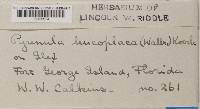 HERBARIUM OF
LINCOLN W. RIDDLE
Pyrenula leucoplaca (Wallr.) Koerb.
on Ilex
Fort George Island, Florida
W. W. Calkins. no. 261